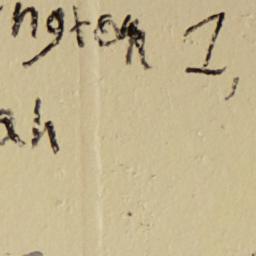 ngton 1,
ah